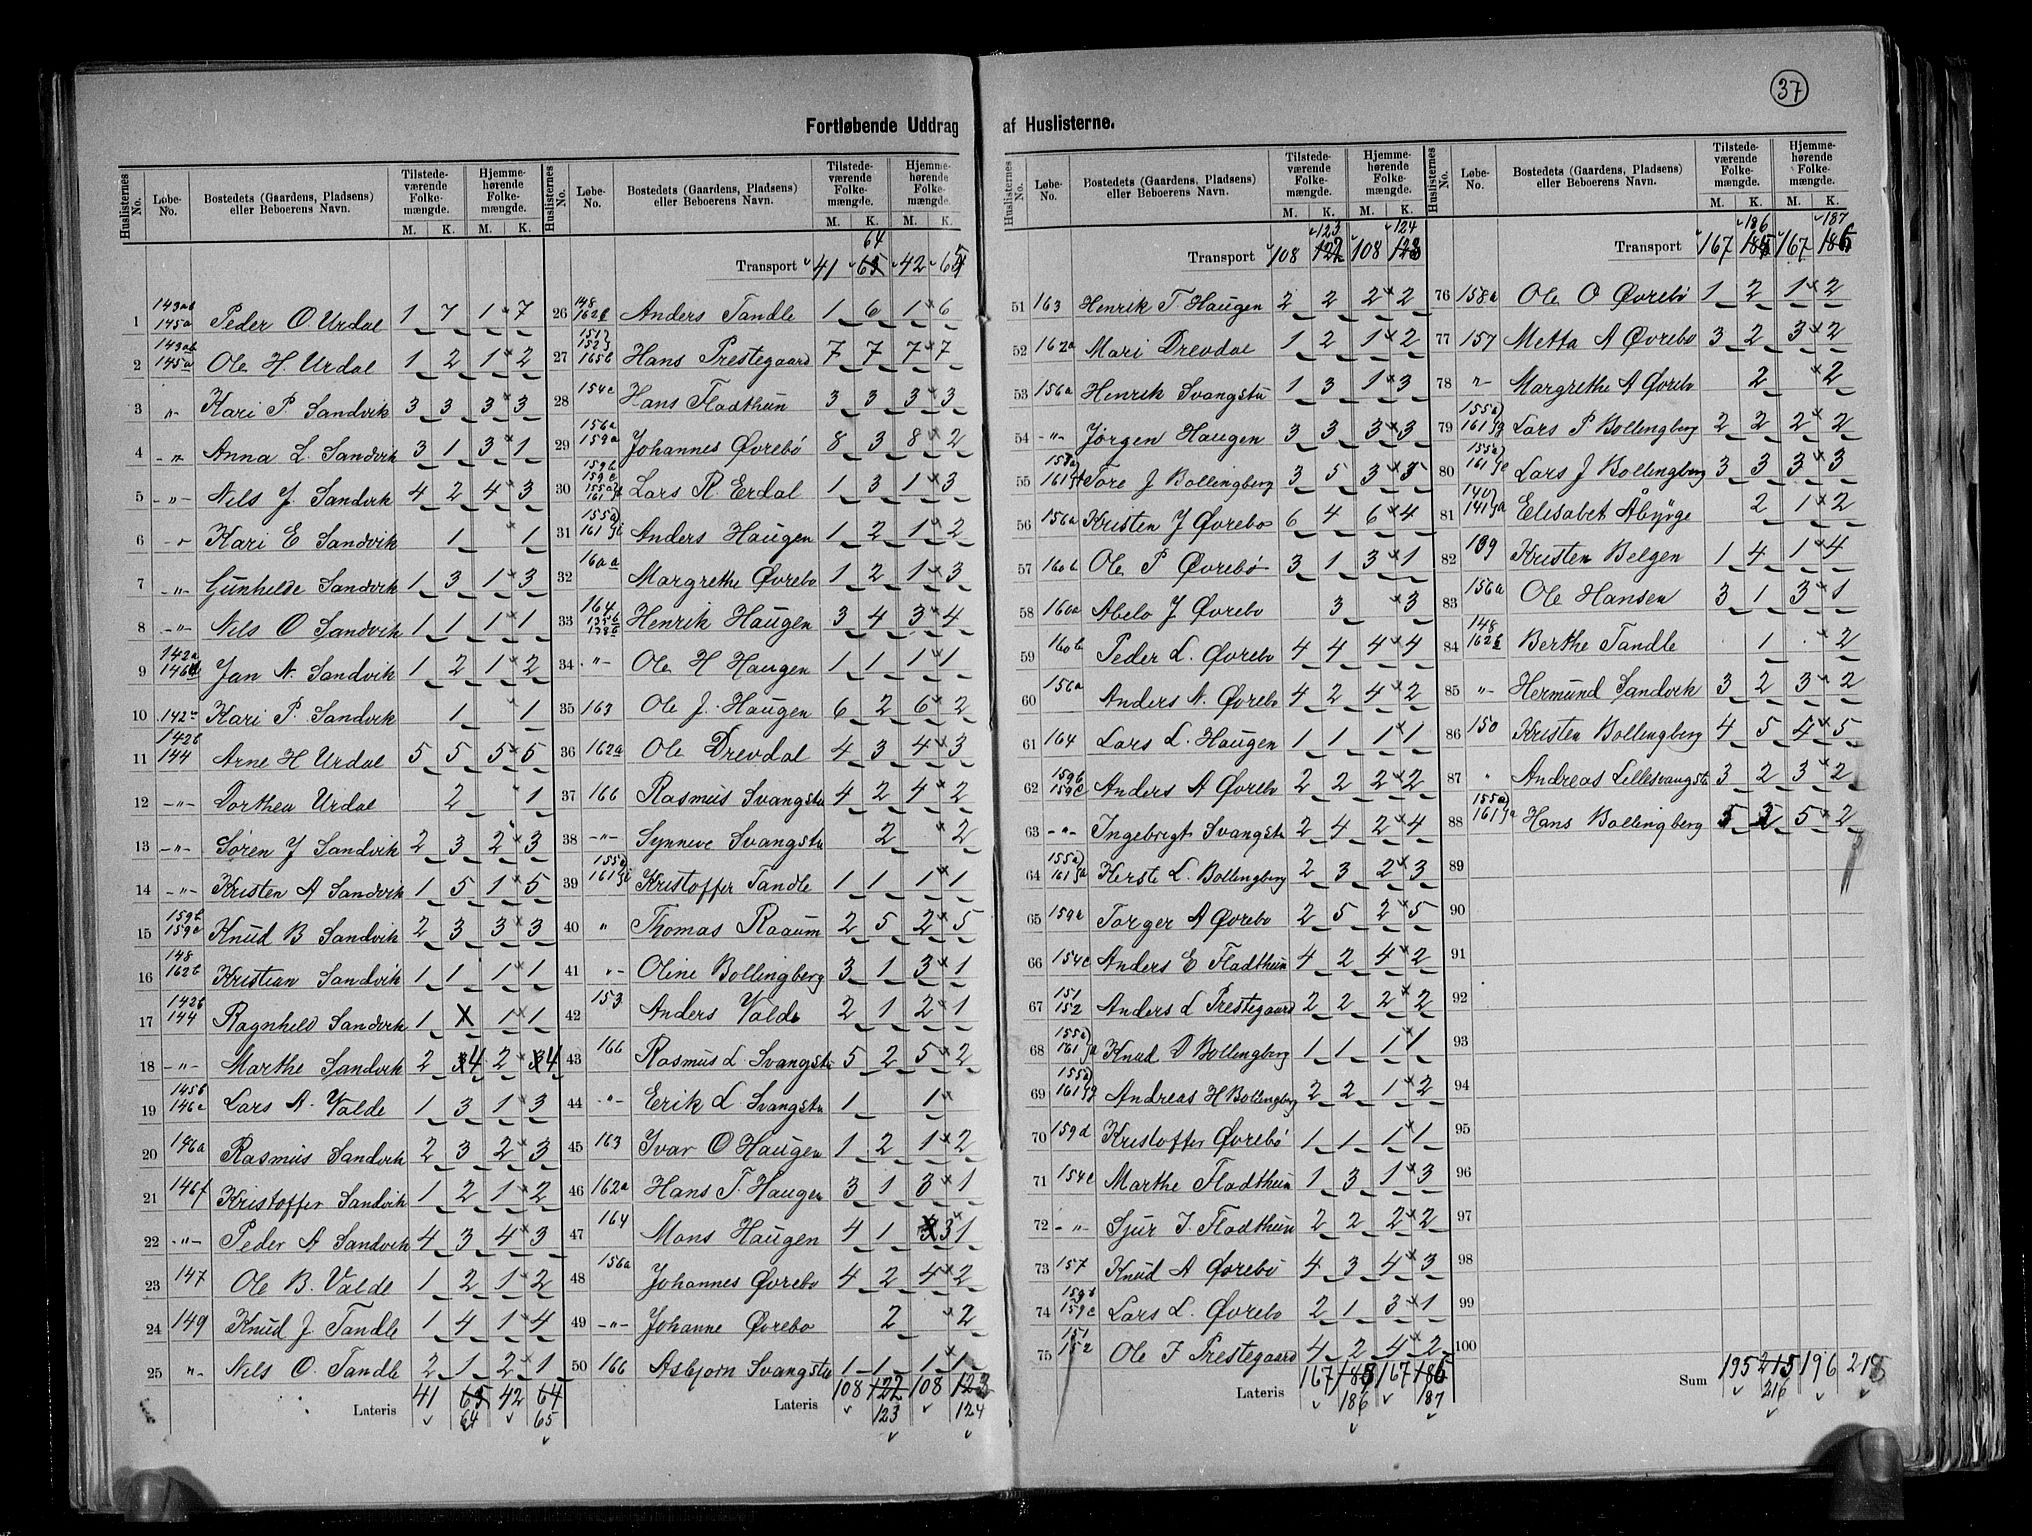 37
Fortløbende Uddrag af Huslisterne.
Huslisternes No. Løbe-No. Bostedets (Gaardens, Pladsens) eller Beboerens Navn. Tilstede-værende Folke-mængde. Hjemme-hørende Folke-mængde.
M. K. M. K.
1 143ab 145a Peder O Urdal 1 7 1 7
2 143ab 145a Ole H. Urdal 1 2 1 2
3 -"- Kari P Sandvik 3 3 3 3
4 -"- Anna L. Sandvik 3 1 3 1
5 -"- Nils J. Sandvik 4 2 4 3
6 -"- Kari E Sandvik 1 1
7 -"- Gunhilde Sandvik 1 3 1 3
8 -"- Nils O Sandvik 1 1 1 1
9 142a Jan N. Sandvik 1 2 1 2
10 142 Kari P. Sandvik 1 1
11 142b 144 Arne H Urdal 5 5 5 5
12 -"- Dorthea Urdal 2 1
13 -"- Søren J Sandvik 2 3 2 3
14 -"- Kristen A Sandvik 1 5 1 5
15 159b 159c Knud B Sandvik 2 3 3 3
16 148 162b Kristian Sandvik 1 1 1 1
17 142b 144 Ragnhild Sandvik 1 1 1
18 -"- Marthe Sandvik 2 4 2 4
19 145b 146c Lars A. Valde 1 3 1 3
20 146a Rasmus Sandvik 2 3 2 3
21 146f Kristoffer Sandvik 1 2 1 2
22 -"- Peder A Sandvik 4 3 4 3
23 147 Ole B. Valde 1 2 1 2
24 149 Knud J. Tandle 1 4 1 4
25 " Nils O. Tandle 2 1 2 1
Lateris 41 65 42 64
64 65
Huslisternes No. Løbe-No. Bostedets (Gaardens, Pladsens) eller Beboerens Navn. Tilstede-værende Folke-mængde. Hjemme-hørende Folke-mængde.
M. K. M. K.
64
Transport 41 65 42 65
26 148 162b Anders Tandle 1 6 1 6
27 151 152 165b Hans Prestegaard 7 7 7 7
28 154c Hans Fladthun 3 3 3 3
29 156a 159a Johannes Øvrebø 8 3 8 2
30 159b 159c 155a 161 Lars R. Erdal 1 3 1 3
31 155a 161 Anders Haugen 1 2 1 2
32 160a Margrethe Øvrebo 1 2 1 3
33 164 135b 138b Henrik Haugen 3 4 3 4
34 -"- Ole H Haugen 1 1 1 1
35 163 Ole J. Haugen 6 2 6 2
36 162a Ole Drevdal 4 3 4 3
37 166 Rasmus Svangstu 4 2 4 2
38 -"- Synneve Svangstu 2 2
39 155a 161 Kristoffer Tandle 1 1 1 1
40 " Thomas Raaum 2 5 2 5
41 "- Oline Bollingberg 3 1 3 1
42 153 Anders Valde 2 1 2 1
43 166 Rasmus L. Svangstu 5 2 5 2
44 -"- Erik L Svangstu 1 1
45 163 Ivar O Haugen 1 2 1 2
46 162a Hans T. Haugen 3 1 3 1
47 164 Mons Haugen 4 1 3 1
48 156a Johannes Øvrebo 4 2 4 2
49 -"- Johanne Øvrebo 2 2
50 166 Asbjorn Svangstu 1 1 1 1
Lateris 108 122 108 123
123 124
Huslisternes No. Løbe-No. Bostedets (Gaardens, Pladsens) eller Beboerens Navn. Tilstede-værende Folke-mængde. Hjemme-hørende Folke-mængde.
M. K. M. K.
123 124
Transport 108 122 108 123
51 163 Henrik T. Haugen 2 2 2 2
52 162a Mari Drevdal 1 2 1 2
53 156a Henrik Svangstu 1 3 1 3
54 -"- Jørgen Haugen 3 3 3 3
55 161 Tore J Bollingberg 3 5 3 5
56 156a Kristen J Øvrebo 6 4 6 4
57 160b Ole P Øvrebø 3 1 3 1
58 160a Abelo J Øvrebo 3 3
59 160b Peder L. Øvrebo 4 4 4 4
60 156a Anders N. Øvrebo 4 2 4 2
61 164 Lars L. Haugen 1 1 1 1
62 159b 159c Anders A Øvrebo 2 2 2 2
63 -"- Ingebrigt Svangstu 2 4 2 4
64 155a 161a Kerste L. Bollingberg 2 3 2 3
65 159a Torger A Øvrebo 2 5 2 5
66 154c Anders E Fladthun 4 2 4 2
67 151 152 Anders L Prestegaard 2 2 2 2
68 155a 161a Knud D Bollingberg 1 1 1 1
69 155a 161g Andreas H Bollingberg 2 2 1 2
70 159d Kristoffer Øvrebø 1 1 1 1
71 154c Marthe Fladthun 1 3 1 3
72 -"- Sjur I. Fladthun 2 2 2 2
73 157 Knud A Øvrebø 4 3 4 3
74 159b 159c Lars L. Øvrebo 2 1 3 1
75 151 152 Ole I Prestegaard 4 2 4 2
Lateris 167 185 167 186
186 187
Huslisternes No. Løbe-No. Bostedets (Gaardens, Pladsens) eller Beboerens Navn. Tilstede-værende Folke-mængde. Hjemme-hørende Folke-mængde.
M. K. M. K.
186 187
Transport 167 185 167 186
76 158a Ole O Øvrebø 1 2 1 2
77 157 Metta A Øvrebo 3 2 3 2
78 "- Margrethe A Øvrebo 2 2
79 155a 161g Lars P Bollingberg 2 2 2 2
80 155a 161e Lars J Bollingberg 3 3 3 3
81 140 141a Elisabet Åbyrge 2 1 2
82 139 Kristen Belgen 1 4 1 4
83 156a Ole Hansen 3 1 3 1
84 148 162b Berthe Tandle 1 2
85 "- Hermund Sandvik 3 2 3 2
86 150 Kristen Bollingberg 4 5 4 5
87 " Andreas Lillesvangstu 3 2 3 2
88 155a 161a Hans Bollingberg 5 3 5 2
89
90
91
92
93
94
95
96
97
98
99
100
Sum 195 215 196 218
216